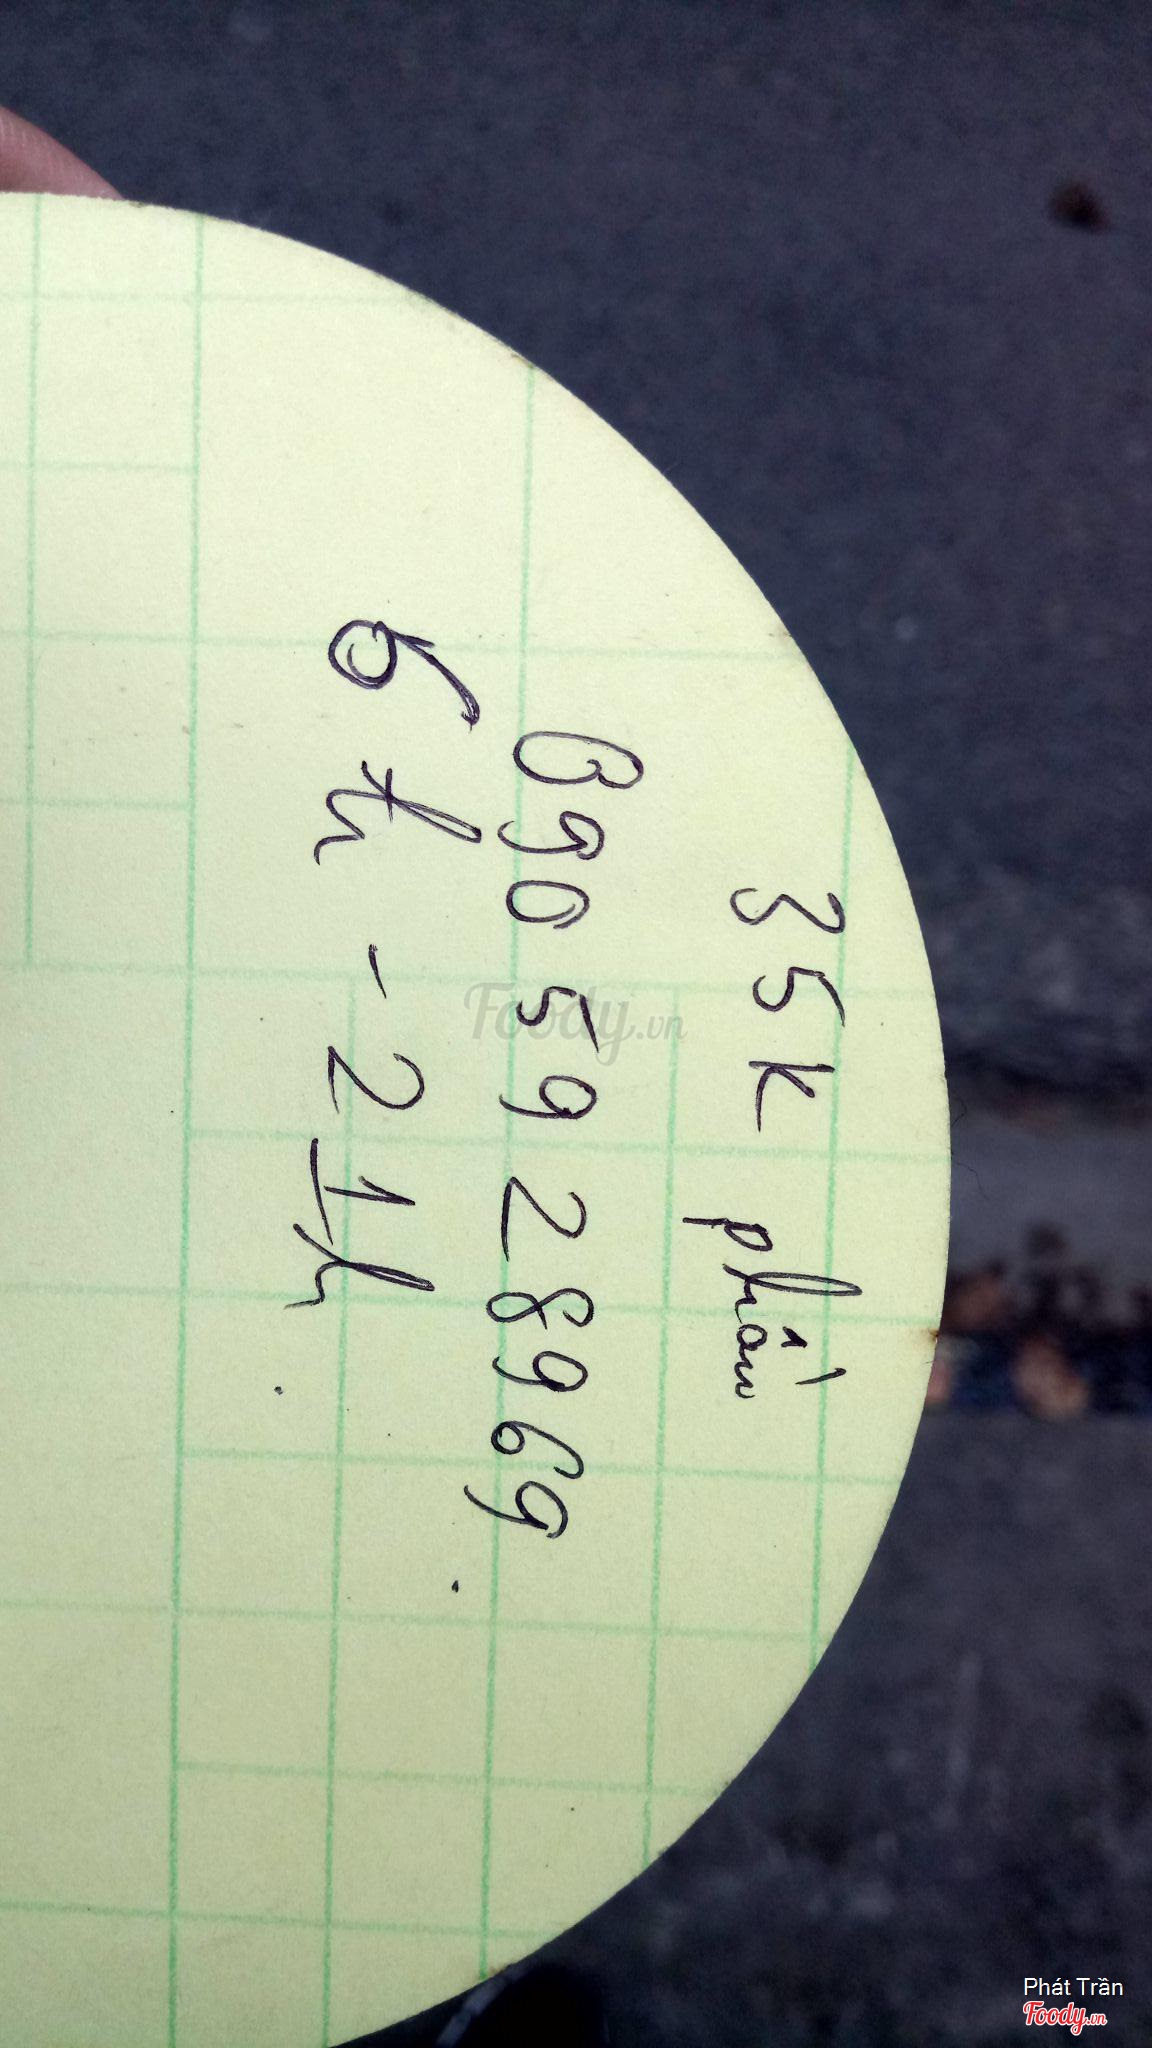 35k phần
090 59 28969
6h - 21h
Foody.vn
Phát Trần
Foody.vn